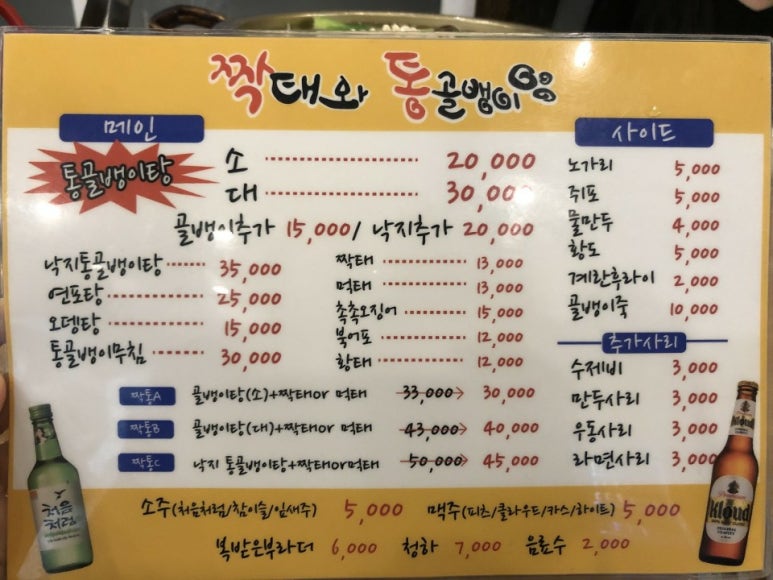 짝태와 통골뱅이
메인
통골뱅이탕
소 20,000
대 30,000
골뱅이추가 15,000 / 낙지추가 20,000
낙지통골뱅이탕 35,000
연포탕 25,000
오뎅탕 15,000
통골뱅이무침 30,000
짝태 13,000
먹태 13,000
촉촉오징어 15,000
북어포 12,000
황태 12,000
짝통A 골뱅이탕(소)+짝태or 먹태 33,000→ 30,000
짝통B 골뱅이탕(대)+짝태or 먹태 43,000→ 40,000
짝통C 낙지 통골뱅이탕+짝태or먹태 50,000→ 45,000
사이드
노가리 5,000
쥐포 5,000
물만두 4,000
황도 5,000
계란후라이 2,000
골뱅이죽 10,000
추가사리
수제비 3,000
만두사리 3,000
우동사리 3,000
라면사리 3,000
소주(처음처럼/참이슬/잎새주) 5,000 맥주(피츠/클라우드/카스/하이트) 5,000
복받은부라더 6,000 청하 7,000 음료수 2,000
처음
처럼
Kloud